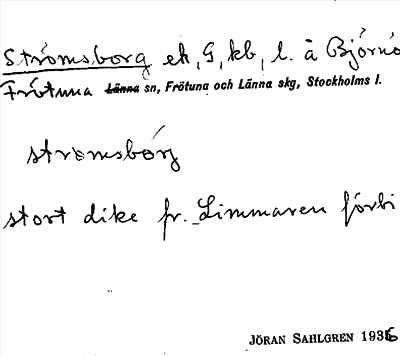 Strömsborg ek, G, kb, l. å Björnö
Frötuna Länna sn, Frötuna och Länna skg, Stockholms l.
strömsbórg
stort dike fr. Limmaren förbi
JÖRAN SAHLGREN 1936